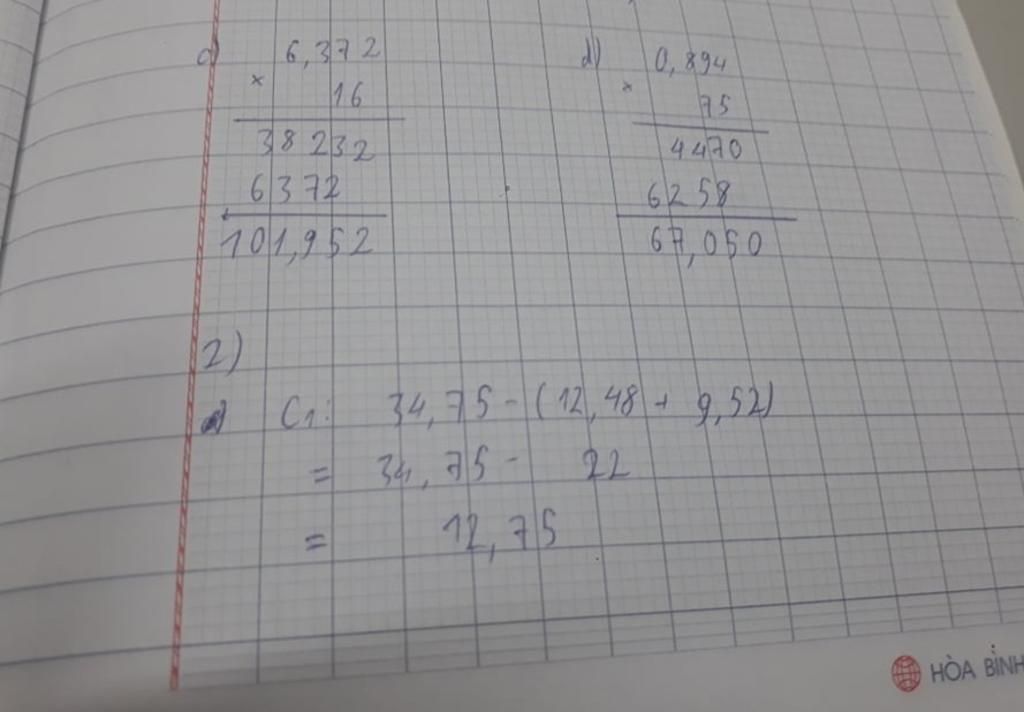 c) 6,372
× 16
38232
6372
101,952
d) 0,894
× 75
4470
6258
67,050
2)
a) C1: 34,75 - (12,48 + 9,52)
= 34,75 - 22
= 12,75
HÒA BÌNH